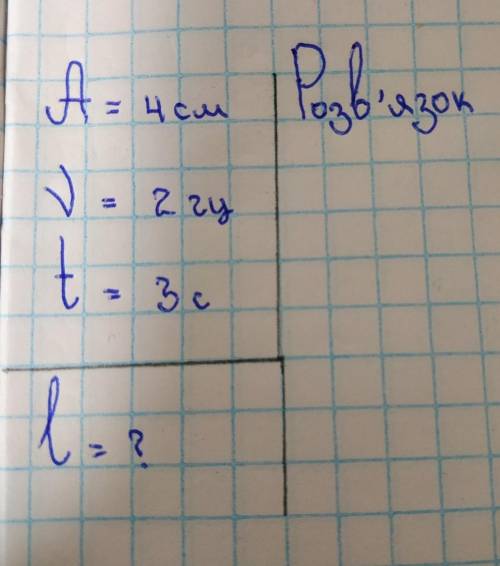 A = 4 см
Розв'язок
ν = 2 гц
t = 3 с
l = ?